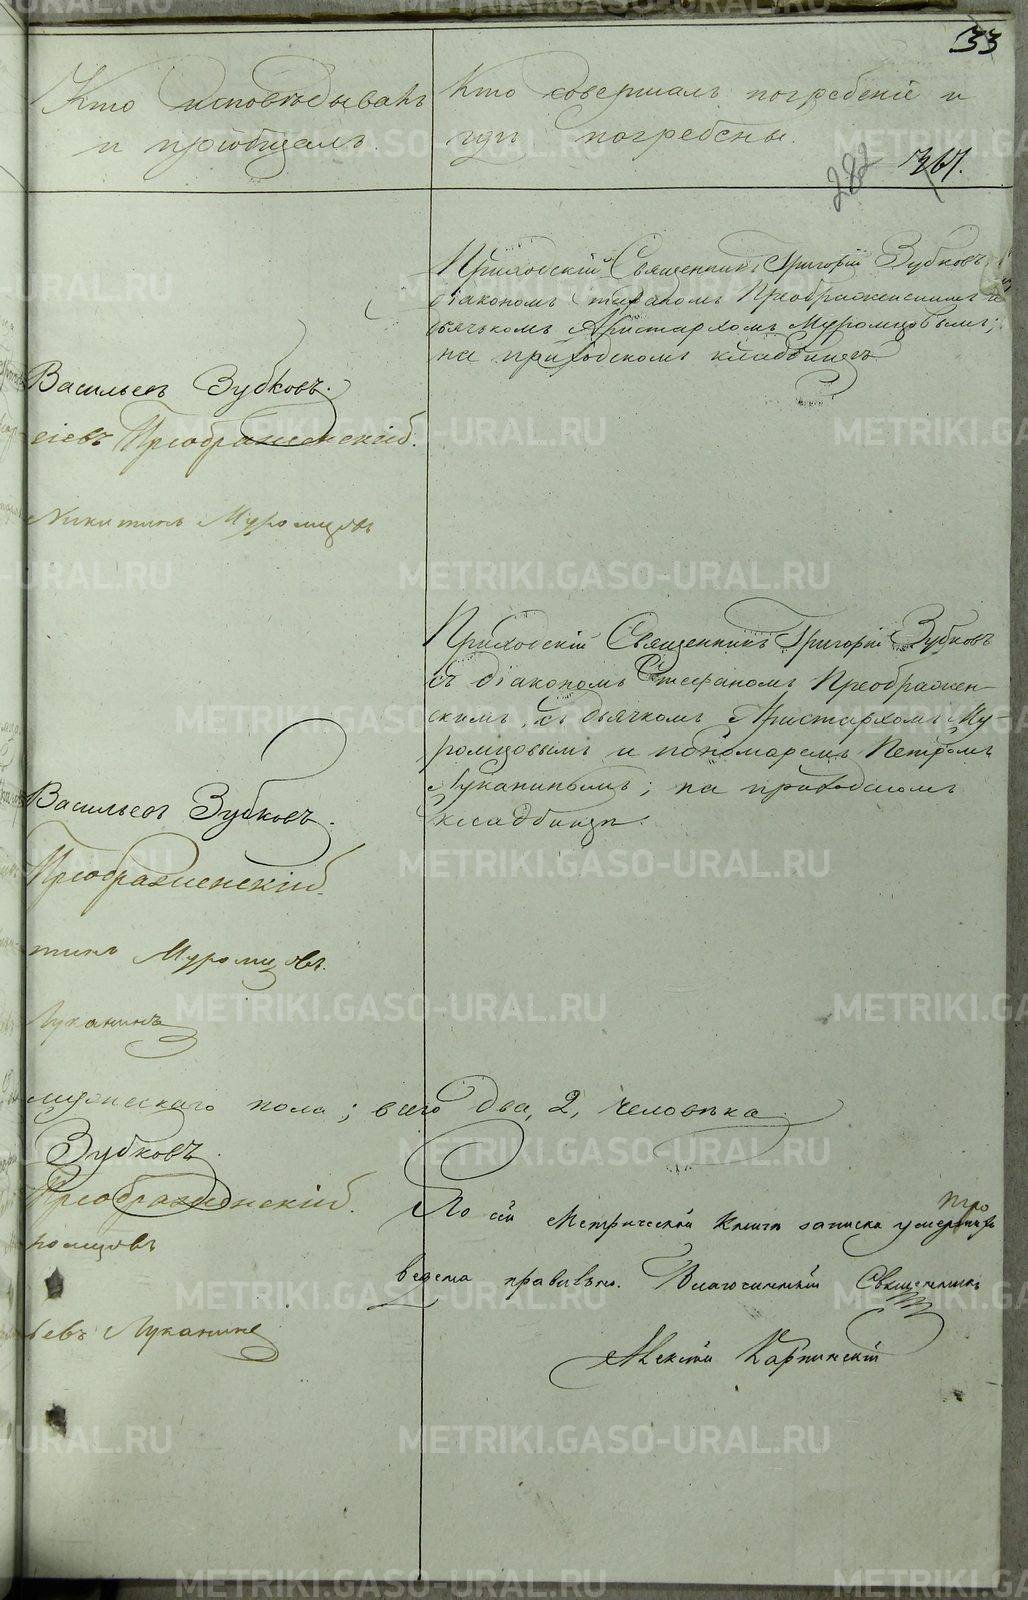 33
Кто исповѣдывалъ
и пріобщалъ.
Кто совершалъ погребеніе и
гдѣ погребены.
282
Приходскій Священникъ Григорій Зубковъ
діакономъ Преображенскимъ
дьячькомъ Аристархомъ Муромцовымъ;
на приходскомъ кладбищѣ
Васильевъ Зубковъ.
Преображенскій.
Никитинъ Муромцовъ
Приходскій Священникъ Григорій Зубковъ
съ діакономъ Стефаномъ Преображен-
скимъ, съ дьячкомъ Аристархомъ Му-
ромцовымъ и пономаремъ Петромъ
Луканинымъ; на приходскомъ
кладбищѣ.
Васильевъ Зубковъ.
Преображенскій.
тинъ Муромцовъ.
Луканинъ
мужескаго пола; всего два, 2, человѣка
Зубковъ.
Преображенскій.
ромцовъ
Луканинъ
По сей Метрической Книгѣ записка умершихъ про
ведена правильно. Благочинный Священникъ
Алексій Карпинскій
METRIKI.GASO-URAL.RU